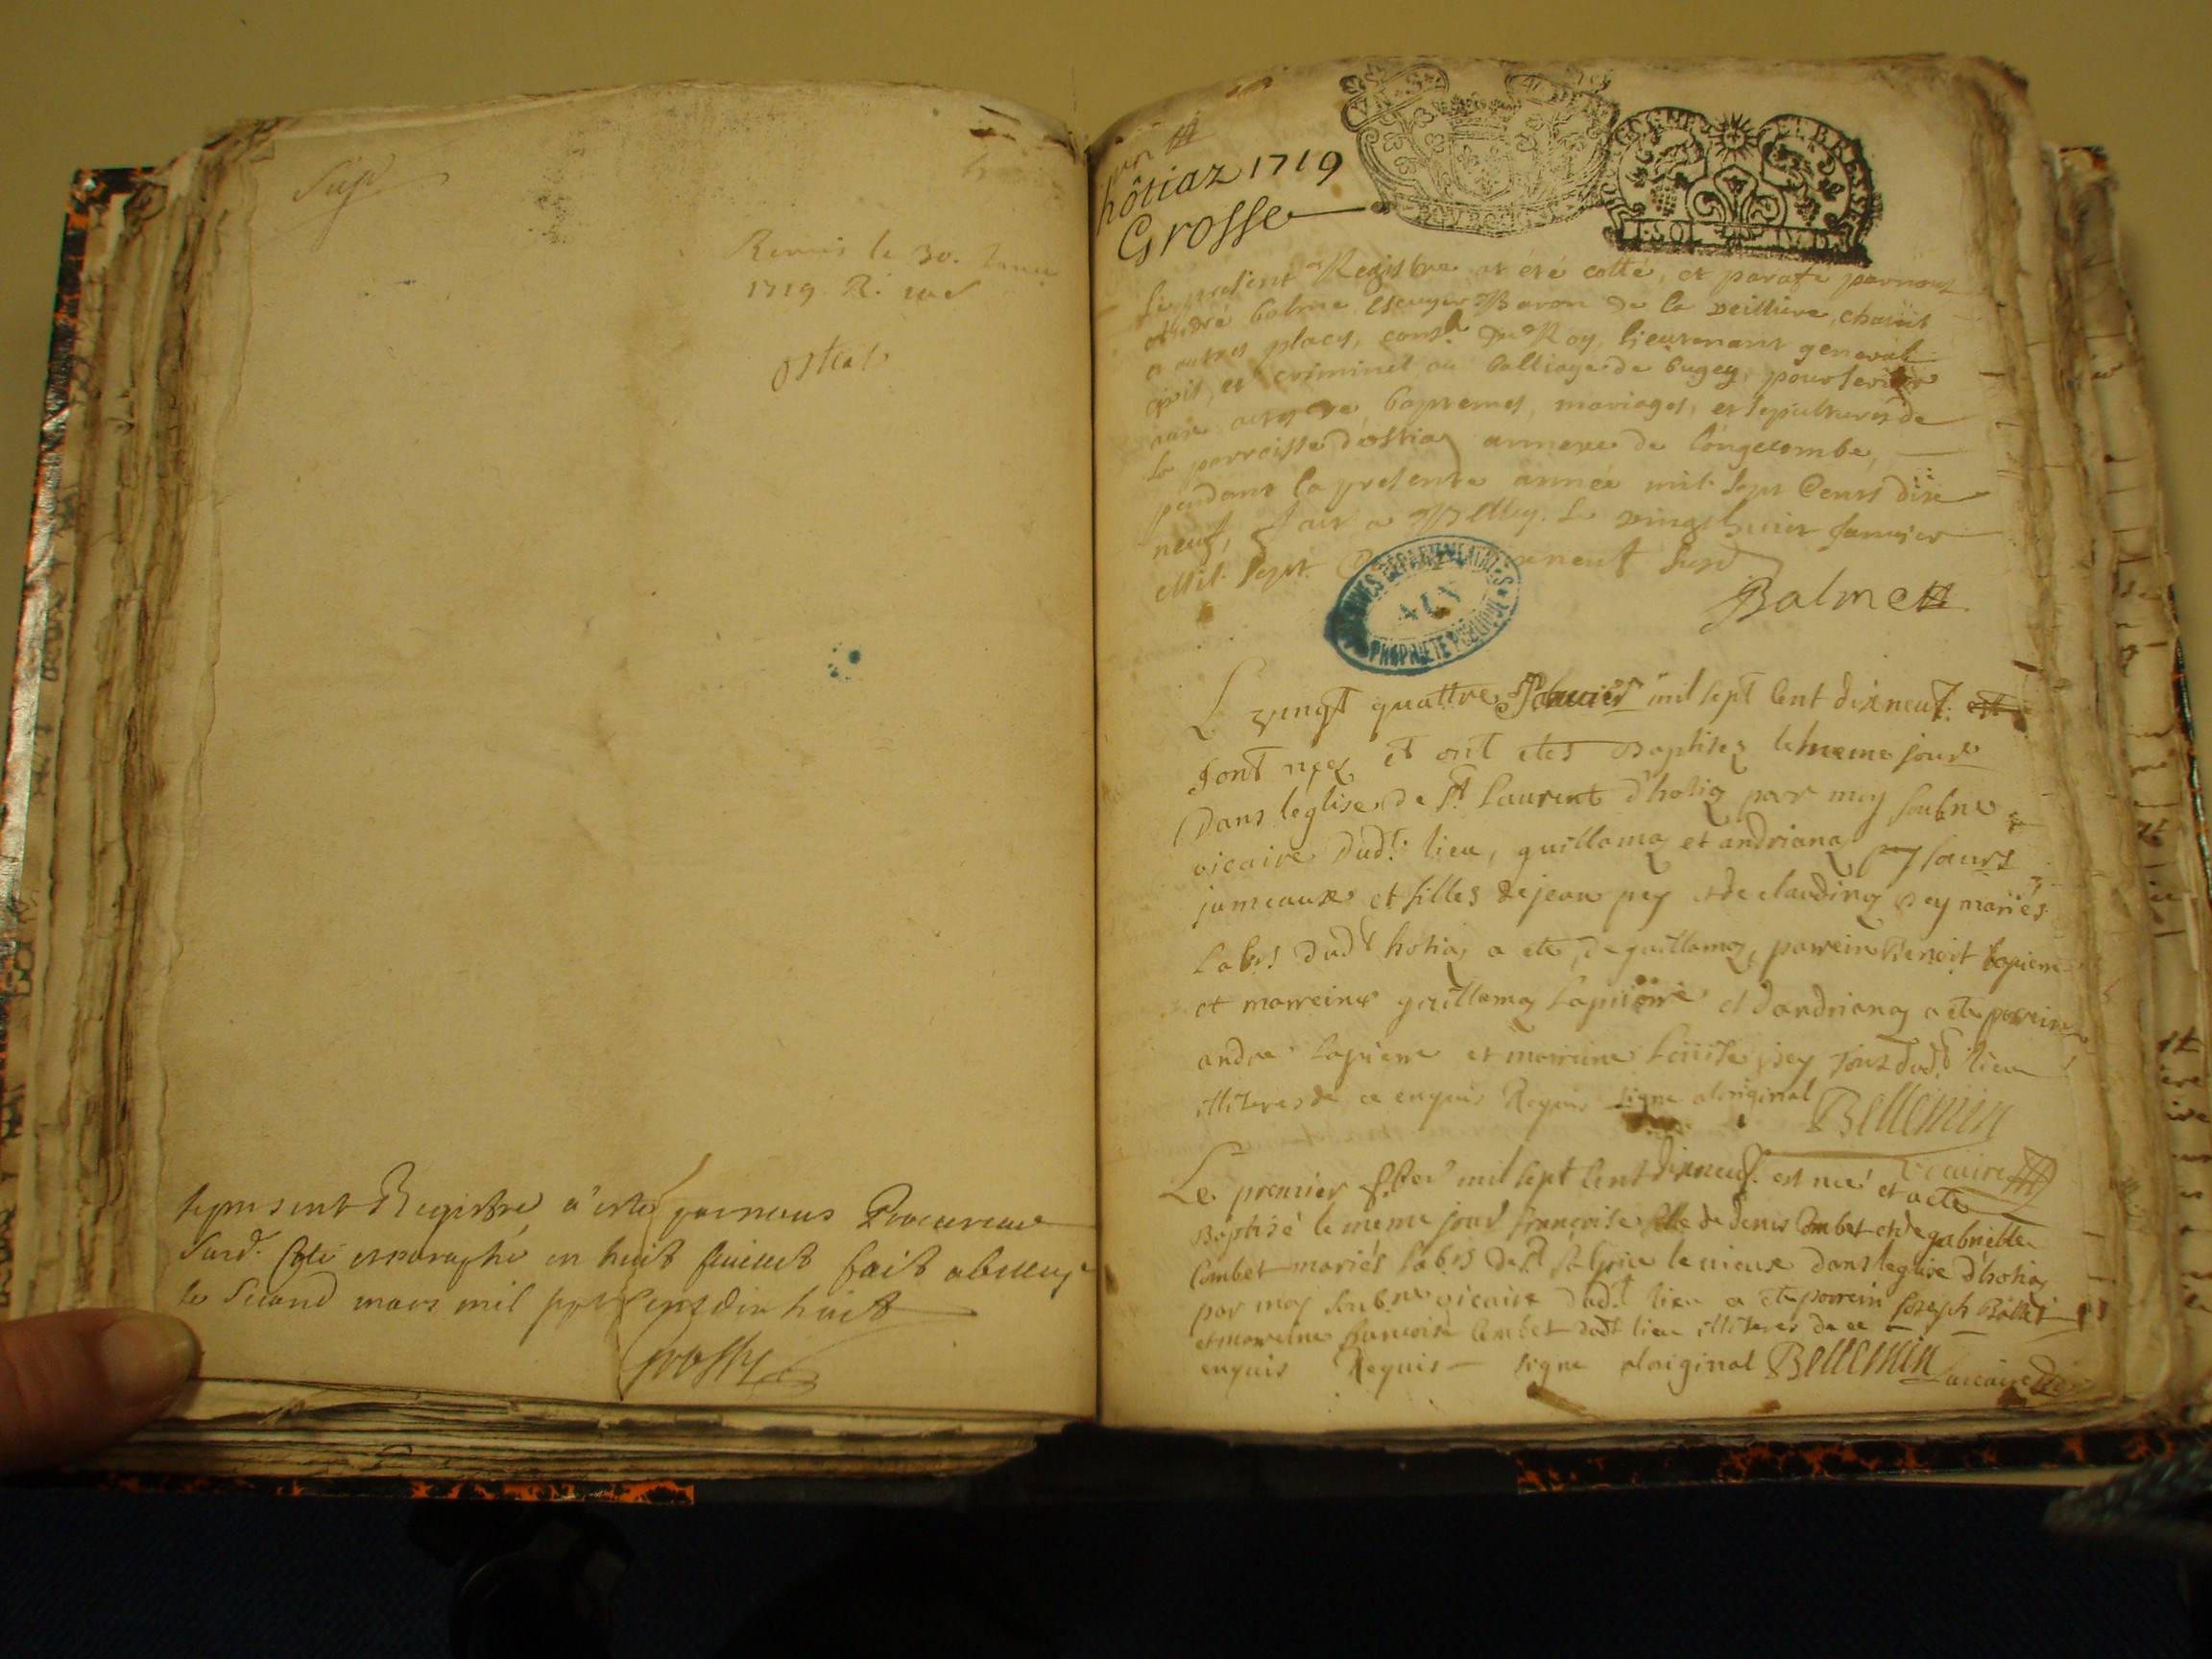 Remis le 30.
1719
ostiaz
le present Registre a esté par nous Procureur
Susd. Coté et paraphé en huit feuillet fait a belley
le Second mars mil sept Cens dix huit
hôtiaz 1719
Grosse
Le present Registre at été cotté, et parafé par nous
André balme Escuyer Baron de la veilliere,
et autres places, cons.er du Roy, lieutenant general
civil, et criminel au balliage de bugey, pour servir
aux actes de baptemes, mariages, et sepultures de
la parroisse d'ostiaz annexe de longecombe,
pendant la presente année mil sept Cents dix
neuf, fait a Belley. Le vingt huict Janvier
Mil Sept neuf Susd
Balme
ARCHIVES DÉPARTEMENTALES
AIN
PROPRIÉTÉ PUBLIQUE
Le vingt quattre Janvier mil sept Cent dixneuf.
Sont nées et ont etes Baptisez le meme jour
Dans leglise de St Laurent d'hotiaz par moy soubne
vicaire dudt. lieu, guillamaz et andrianaz pey sœurs
jumeaux et filles de jean pey et de claudinaz pey mariés
Labrs dudt hotiaz a ete, de guillamaz, parrein Benoit Lapierre
et marreine guillamaz Lapierre et dandrianaz a ete parrein
andre Lapierre et marreine Louise pey tous dudt lieu
illiteres de ce enquis Requis signe aloriginal Bellemin
vicaire
Le premier fber mil sept Cent dixneuf. est née et a ete
Baptisé le meme jour françoise fille de denis Combet et de gabrielle
Combet mariés Labrs de St Sulpice le vieux dans leglise d'hotiaz
par moy soubne vicaire dudt lieu a ete parrein Joseph Ballet
et marreine francoise Combet dudt lieu illiteres de ce
enquis Requis signe aloriginal Bellemin vicaire